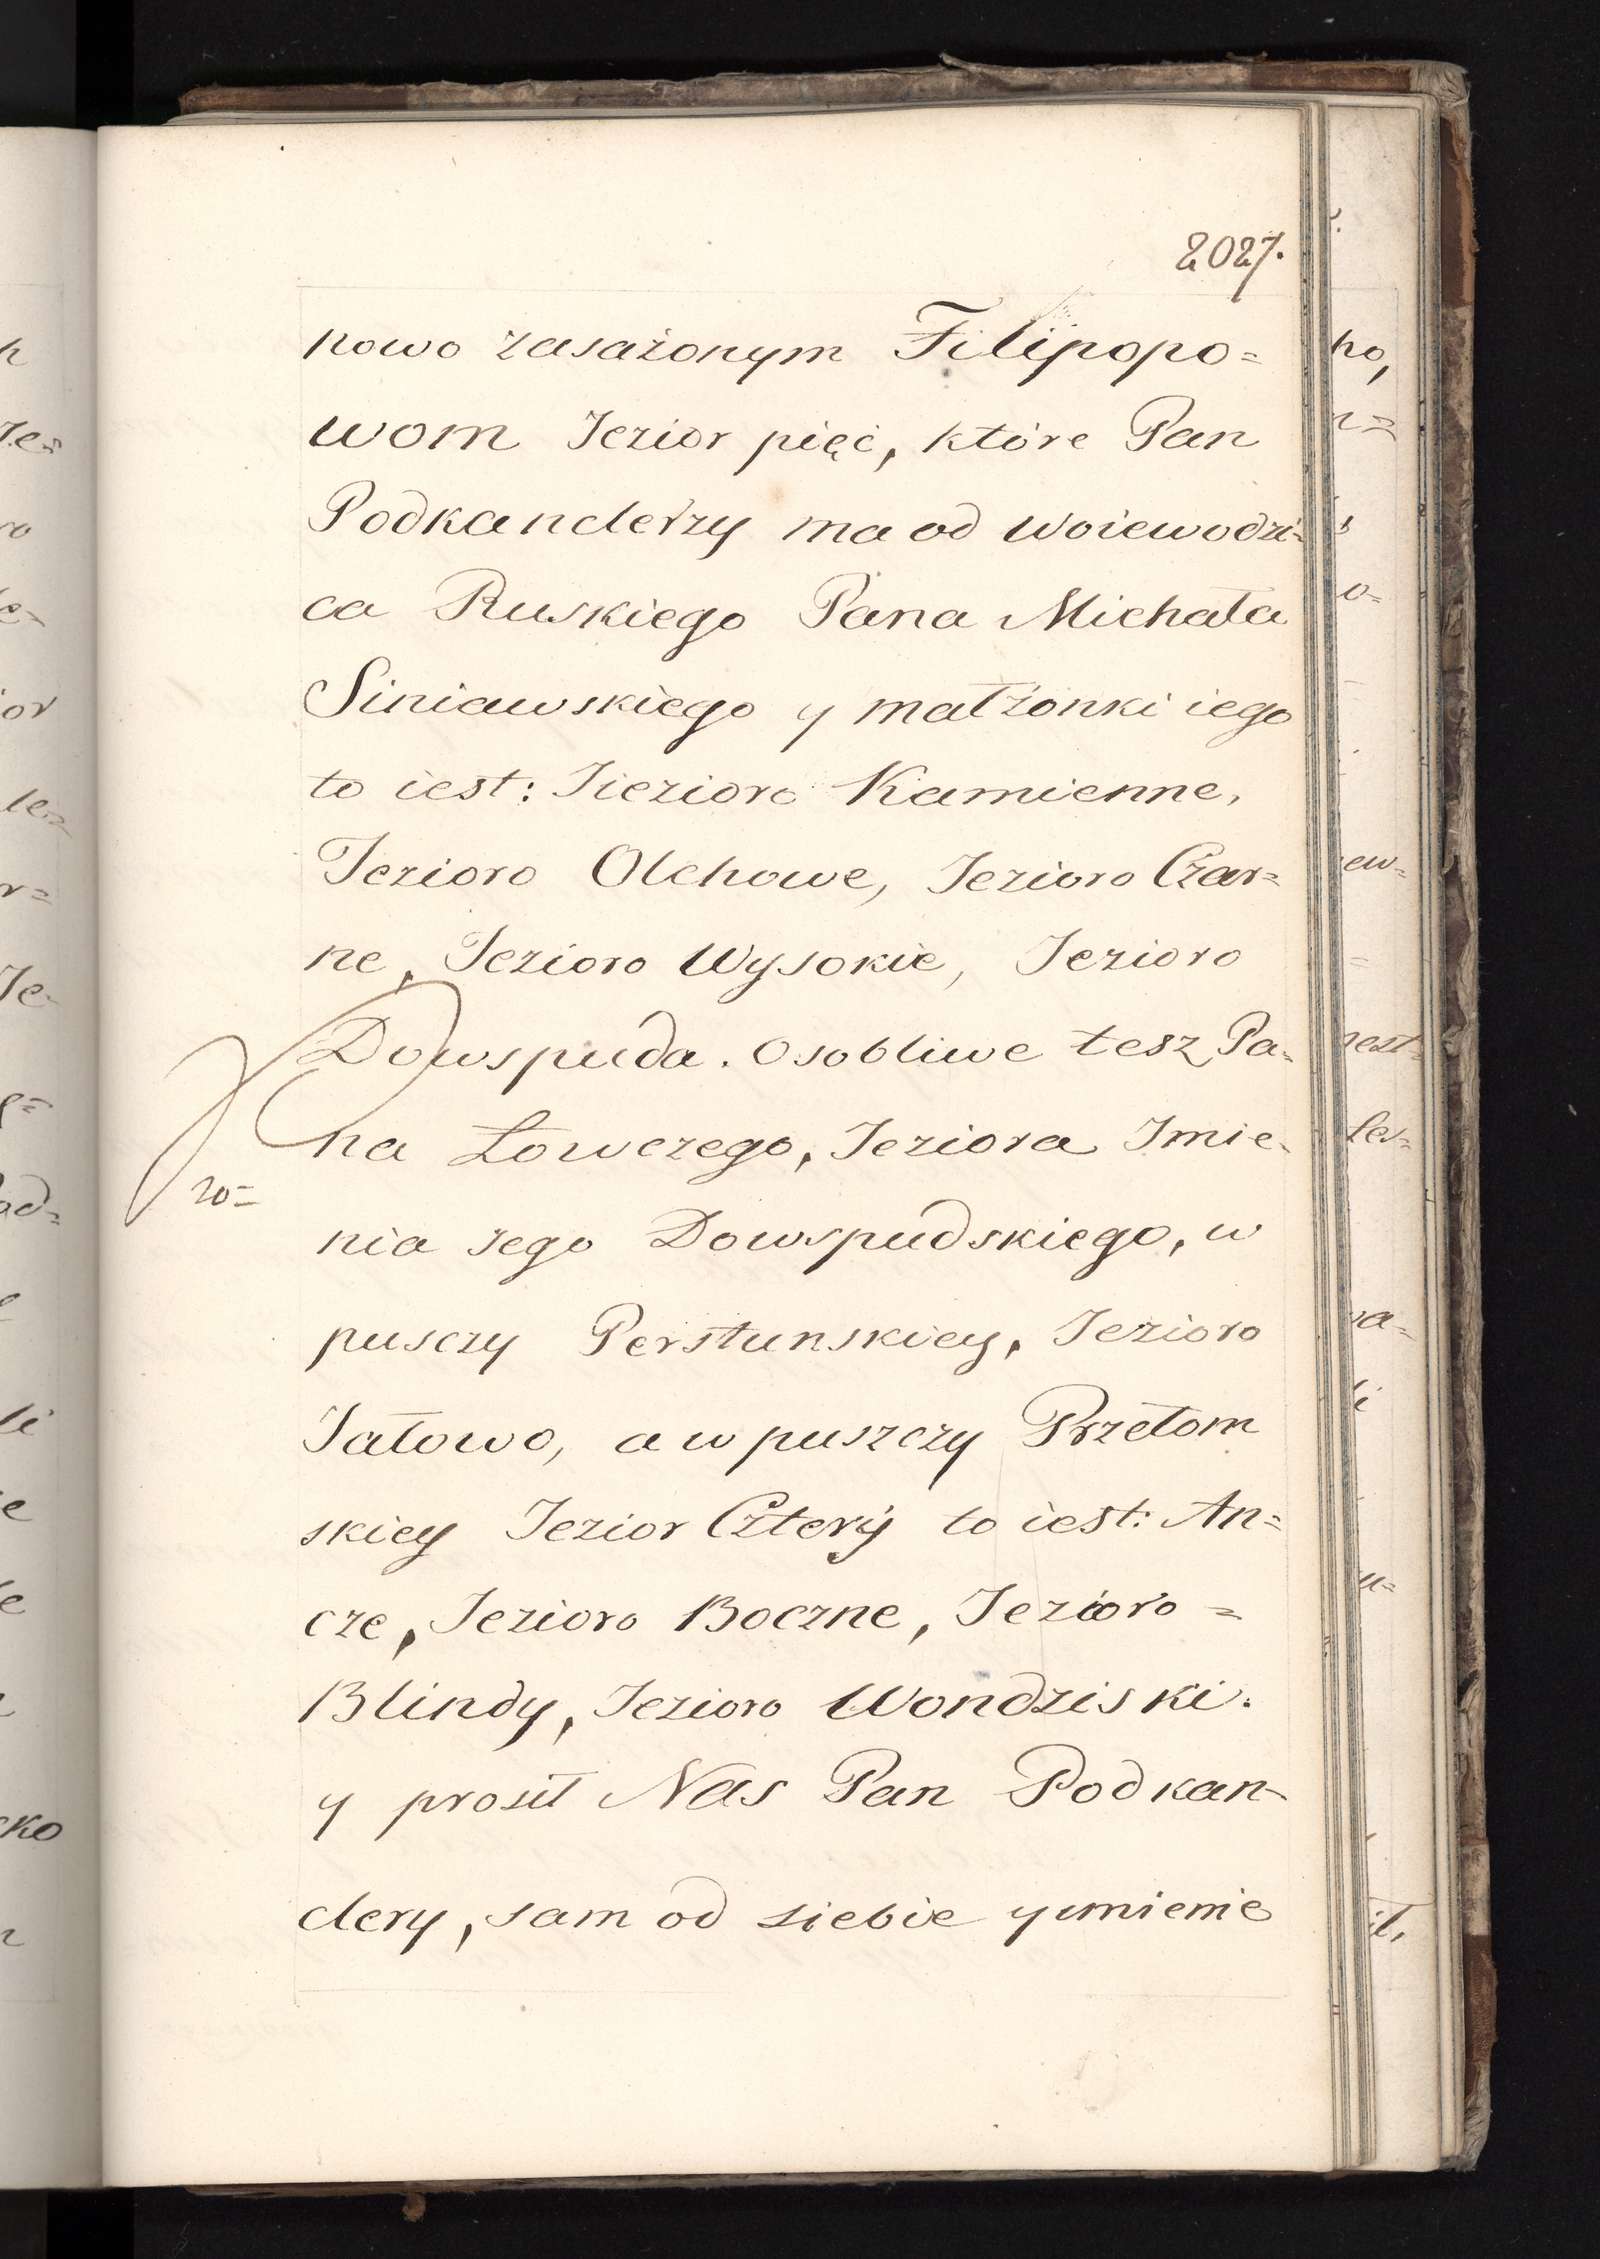 2027.
nowo zasażonym Filipopo=
wom Jezior pięć, które Pan
Podkanclerzy ma od Woiewodzi=
ca Ruskiego Pana Michała
Siniawskiego y małżonki iego
to iest: Jiezioro Kamienne,
Jezioro Olchowe, Jezioro Czar=
ne, Jezioro Wysokie, Jezioro
Dowspuda. Osobliwe tesz Pa=
na Łowczego, Jeziora Jmie=
nia Jego Dowspudskiego, w
pusczy Perstunskiey, Jezioro
Jałowo, a w puszczy Przełom
skiey Jezior Cztery to iest: An=
cze, Jezioro Boczne, Jezioro =
Blindy, Jezioro Wondziski.
y prosił Nas Pan Podkan=
clery, sam od siebie y imienie